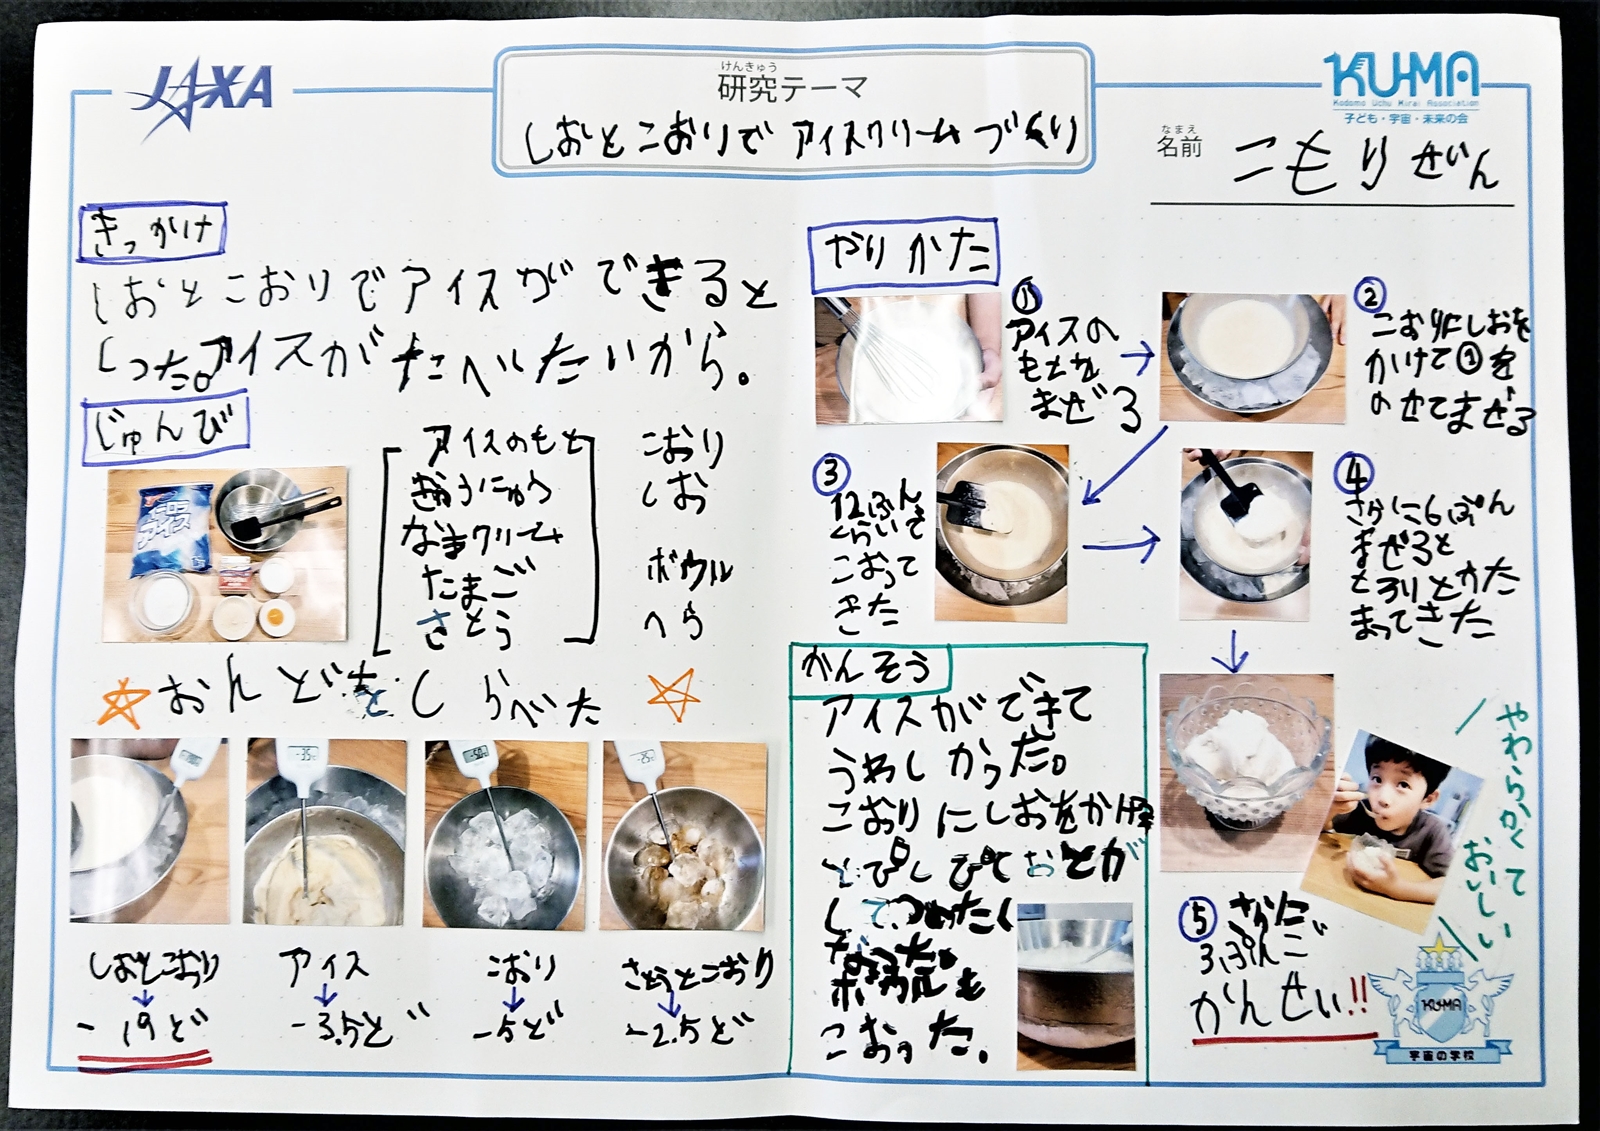 JAXA
けんきゅう
研究テーマ
しおとこおりで アイスクリームづくり
KU-MA
Kodomo Uchu Mirai Association
子ども・宇宙・未来の会
なまえ
名前
こもり ぜいん
きっかけ
しおとこおりでアイスができると
しった。アイスがたべしたいから。
じゅんび
アイスのもと
ぎゅうにゅう
なまクリーム
たまご
さとう
こおり
しお
ボウル
へら
おんどをしらべた
しおとこおり
↓
-19ど
アイス
↓
-3.5ど
こおり
↓
-5ど
さとうとこおり
↓
-2.5ど
やりかた
①
アイスの
もとを
まぜる
②
こおりにしおを
かけて①を
のせてまぜる
③
12ふん
くらいで
こおって
きた
④
さらに6ぷん
まぜると
とろりとかた
まってきた
⑤ さらに
3ぷんご
かんせい!!
やわらかくて
おいしい
かんそう
アイスができて
うれしかった。
こおりにしおをかける
とぴしぴておとが
してつめたく
なった。
ボウルも
こおった。
KU-MA
宇宙の学校